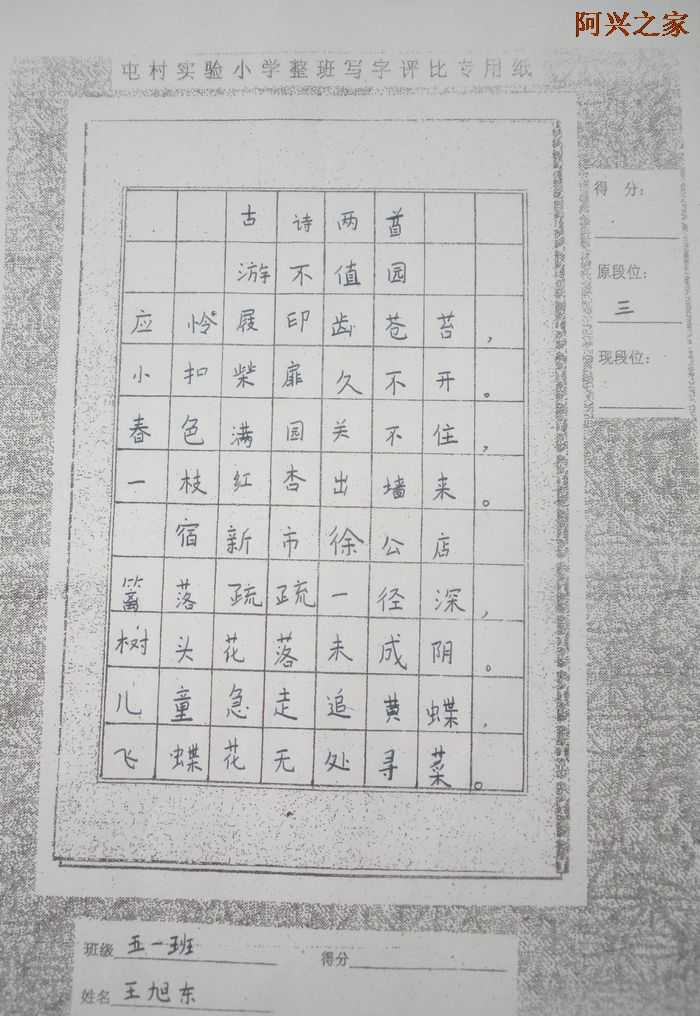 阿兴之家
屯村实验小学整班写字评比专用纸
古诗两首
游不值园
应怜屐印齿苍苔，
小扣柴扉久不开。
春色满园关不住，
一枝红杏出墙来。
宿新市徐公店
篱落疏疏一径深，
树头花落未成阴。
儿童急走追黄蝶，
飞蝶花无处寻菜。
得分：
原段位：
三
现段位：
班级 五一班 得分
姓名 王旭东